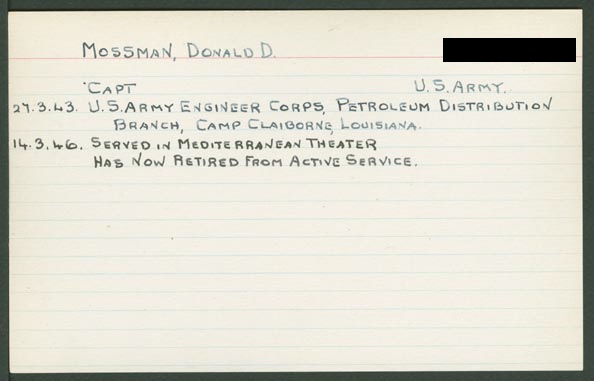 MOSSMAN, DONALD D.
CAPT U.S. ARMY.
27.3.43. U.S. ARMY ENGINEER CORPS, PETROLEUM DISTRIBUTION
BRANCH, CAMP CLAIBORNE, LOUISIANA.
14.3.46. SERVED IN MEDITERRANEAN THEATER
HAS NOW RETIRED FROM ACTIVE SERVICE.